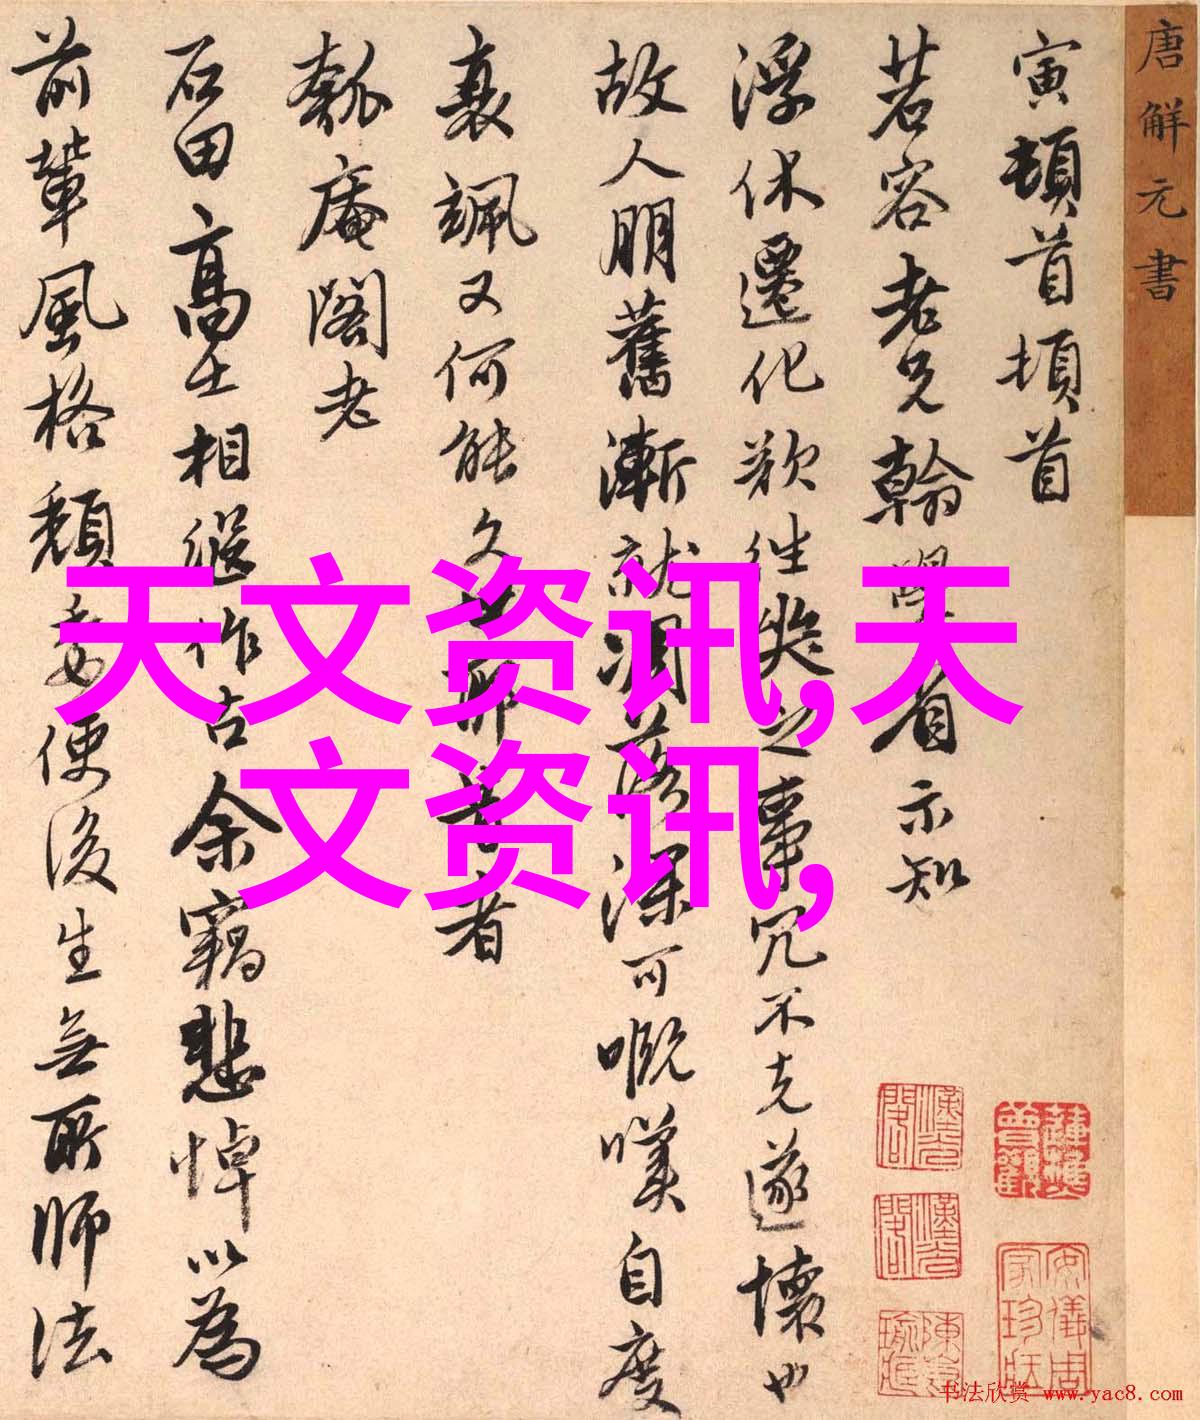 唐解元書
寅頓首頓首
茗容老兄翰學 省示知
浮休遷化欲往 之事冗不克遂懷也
故人朋舊漸就凋落深可嘅嘆自度
衰颯又何能久 者
瓠庵閣老
石田高士相繼作古余竊悲悼以為
前輩風格頹委便後生無所師法
天文资讯,天
文资讯,
书法欣赏 www.yac8.com